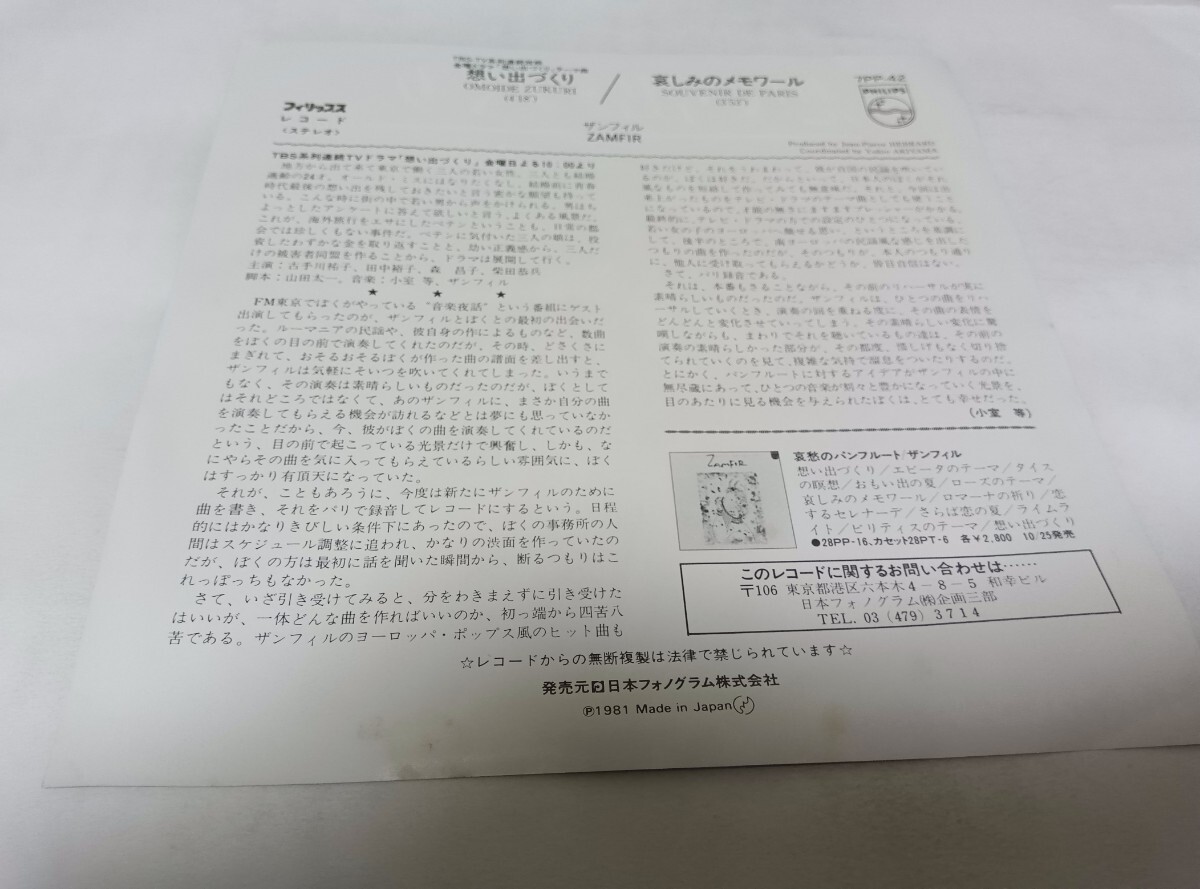 TBS・TV系列連続特別
金曜ドラマ「想い出づくり」テーマ曲
想い出づくり
OMOIDE ZUKURI
(4'18")
哀しみのメモワール
SOUVENIR DE PARIS
(3'53")
7PP-42
PHILIPS
フィリップス
レコード
〈ステレオ〉
ザンフィル
ZAMFIR
Produced by Jean-Pierre HEBRARD
Coordinated by Yukio AKIYAMA
TBS系列連続TVドラマ「想い出づくり」金曜日よる10:00より
地方から出て来て東京で働く三人の若い女性、三人とも結婚
適齢の24才。オールド・ミスにはなりたくなし、結婚前に青春
時代最後の想い出を残しておきたいと言う密かな願望も持って
いる。こんな時に街の中で若い男から声をかけられる。男はち
ょっとしたアンケートに答えて欲しいと言う、よくある風景だ。
これが、海外旅行をエサにしたペテンということも、日常の都
会では珍しくもない事件だ。ペテンに気付いた三人の娘は、投
資したわずかな金を取り返すことと、幼い正義感から、三人だ
けの被害者同盟を作ることから、ドラマは展開して行く。
主演:古手川祐子、田中裕子、森 昌子、柴田恭兵
脚本:山田太一。音楽:小室 等、ザンフィル
★ ★ ★
FM東京でぼくがやっている“音楽夜話”という番組にゲスト
出演してもらったのが、ザンフィルとぼくとの最初の出会いだ
った。ルーマニアの民謡や、彼自身の作によるものなど、数曲
をぼくの目の前で演奏してくれたのだが、その時、どさくさに
まぎれて、おそるおそるぼくが作った曲の譜面を差し出すと、
ザンフィルは気軽にそいつを吹いてくれてしまった。いうまで
もなく、その演奏は素晴らしいものだったのだが、ぼくとして
はそれどころではなくて、あのザンフィルに、まさか自分の曲
を演奏してもらえる機会が訪れるなどとは夢にも思っていなか
ったことだから、今、彼がぼくの曲を演奏してくれているのだ
という、目の前で起こっている光景だけで興奮し、しかも、な
にやらその曲を気に入ってもらえているらしい雰囲気に、ぼく
はすっかり有頂天になっていた。
それが、こともあろうに、今度は新たにザンフィルのために
曲を書き、それをパリで録音してレコードにするという。日程
的にはかなりきびしい条件下にあったので、ぼくの事務所の人
間はスケジュール調整に追われ、かなりの渋面を作っていたの
だが、ぼくの方は最初に話を聞いた瞬間から、断るつもりはこ
れっぽっちもなかった。
さて、いざ引き受けてみると、分をわきまえずに引き受けた
はいいが、一体どんな曲を作ればいいのか、初っ端から四苦八
苦である。ザンフィルのヨーロッパ・ポップス風のヒット曲も
好きだけど、それをうわまわって、彼が自国の民謡を吹いてい
るのが、ぼくは好きだ。だからといって、日本人のぼくがそれ
風なものを匂わして作ってみても無意味だ。それと、今回は出
来上がったものをテレビ・ドラマのテーマ曲としても使うこと
になっているので、才能の無さにますますプレッシャーがかかる。
最終的に、テレビ・ドラマの方での設定のひとつになっている、
若い女の子のヨーロッパへ馳せる思い、というところを意識に
して、後半のところで、南ヨーロッパの民謡風な感じを出した
つもりの曲を作ったのだが、そのつもりが、本人のつもり通り
に、他人に受け取ってもらえるかどうか、皆目自信はない。
さて、パリ録音である。
それは、本番もさることながら、その前のリハーサルが実に
素晴らしいものだったのだ。ザンフィルは、ひとつの曲をリハ
ーサルしていくとき、演奏の回を重ねる度に、その曲の表情を
どんどんと変化させていってしまう。その素晴らしい変化に驚
嘆しながらも、まわりでそれを聴いているもの達は、その前の
演奏の素晴らしかった部分が、その都度、惜しげもなく切り捨
てられていくのを見て、複雑な気持で溜息をついたりするのだ。
とにかく、パンフルートに対するアイデアがザンフィルの中に
無尽蔵にあって、ひとつの音楽が刻々と豊かになっていく光景を、
目のあたりに見る機会を与えられたぼくは、とても幸せだった。
(小室 等)
Zamfir
哀愁のパンフルート/ザンフィル
想い出づくり/エビータのテーマ/タイス
の瞑想/おもい出の夏/ローズのテーマ/
哀しみのメモワール/ロマーナの祈り/恋
するセレナーデ/さらば恋の夏/ライムラ
イト/ビリティスのテーマ/想い出づくり
●28PP-16、カセット28PT-6 各¥2,800 10/25発売
このレコードに関するお問い合わせは……
〒106 東京都港区六本木4-8-5 和幸ビル
日本フォノグラム㈱企画三部
TEL. 03 (479) 3714
☆レコードからの無断複製は法律で禁じられています☆
発売元 日本フォノグラム株式会社
Ⓟ1981 Made in Japan